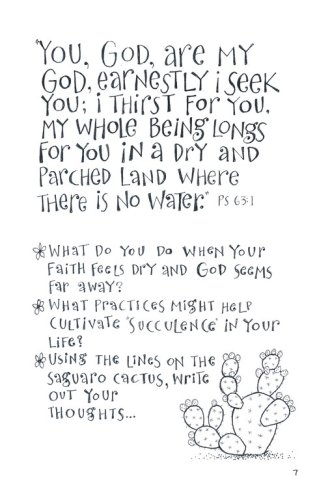 "You, God, are my
God, earnestly i seek
you; i thirst for you,
my whole being longs
for you in a dry and
parched land where
there is no water." Ps 63:1
What do you do when your
faith feels dry and God seems
far away?
What practices might help
cultivate "succulence" in your
life?
Using the lines on the
saguaro cactus, write
out your
thoughts...
7